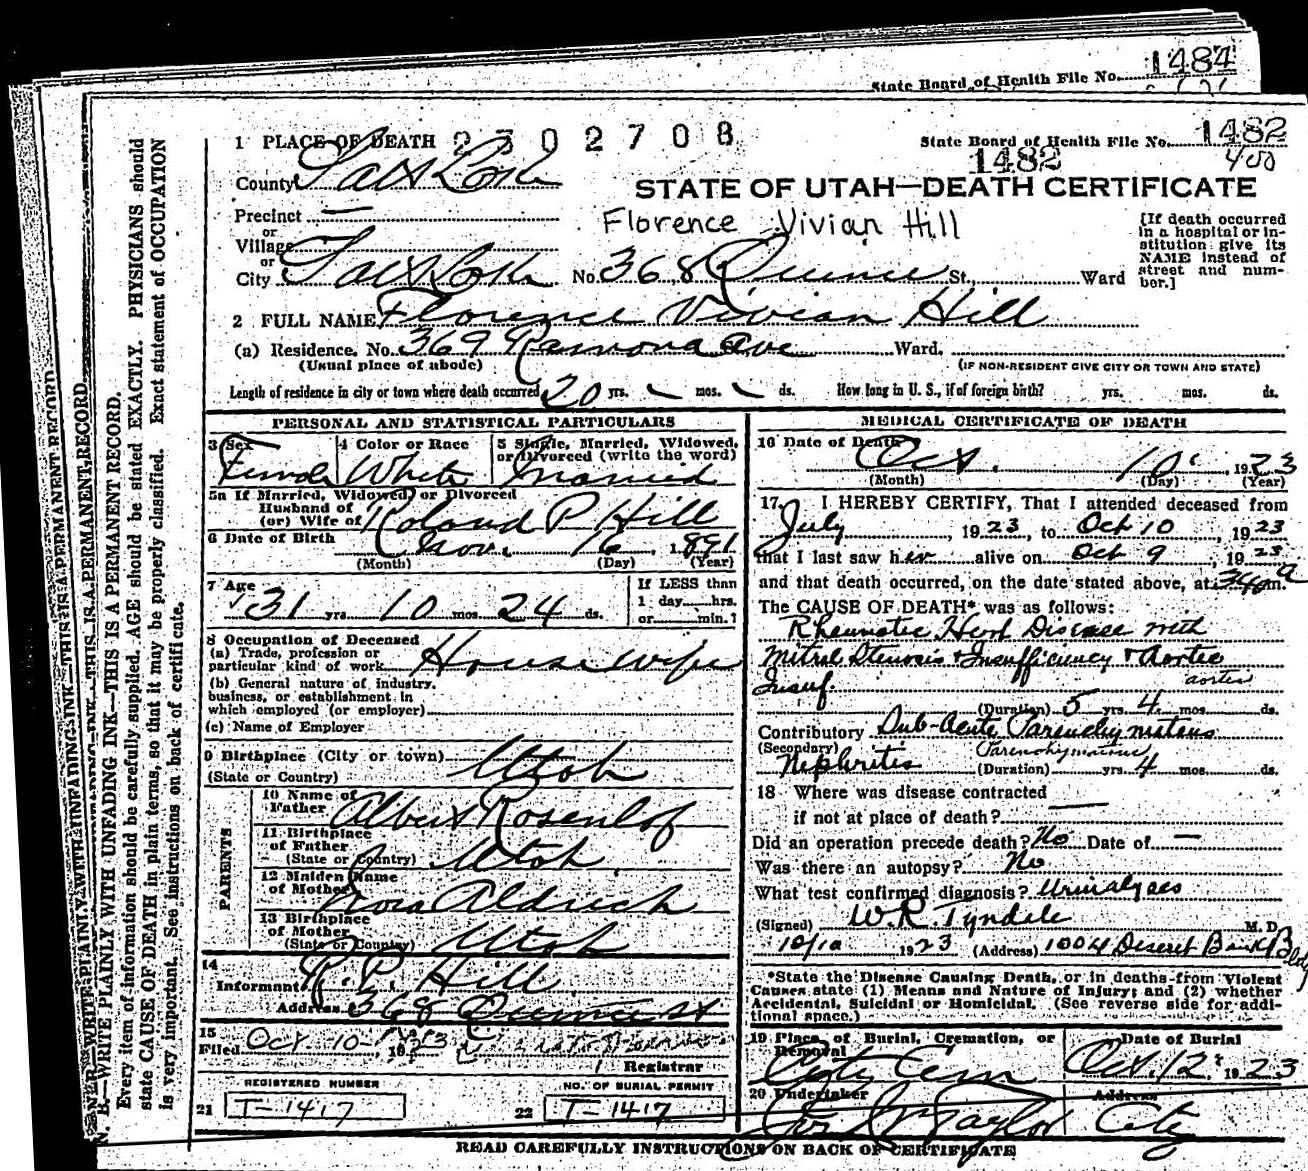 1484
State Board of Health File No.
1 PLACE OF DEATH 2302708
State Board of Health File No. 1482
1482 400
County Salt Lake
STATE OF UTAH—DEATH CERTIFICATE
Precinct —
Florence Vivian Hill
or
Village
or
City Salt Lake No. 368 Quince St. Ward
[If death occurred in a hospital or institution give its NAME instead of street and number.]
2 FULL NAME Florence Vivian Hill
(a) Residence. No. 369 Ramona Ave Ward.
(Usual place of abode) (IF NON-RESIDENT GIVE CITY OR TOWN AND STATE)
Length of residence in city or town where death occurred 20 yrs. mos. ds. How long in U. S., if of foreign birth? yrs. mos. ds.
PERSONAL AND STATISTICAL PARTICULARS
3 Sex 4 Color or Race 5 Single, Married, Widowed, or Divorced (write the word)
Female White Married
5a If Married, Widowed, or Divorced
Husband of
(or) Wife of Roland P Hill
6 Date of Birth Nov. 16, 1891
(Month) (Day) (Year)
7 Age If LESS than
31 yrs. 10 mos. 24 ds. 1 day....hrs.
or....min.?
8 Occupation of Deceased
(a) Trade, profession or
particular kind of work Housewife
(b) General nature of industry,
business, or establishment in
which employed (or employer)
(c) Name of Employer
9 Birthplace (City or town)
(State or Country) Utah
PARENTS
10 Name of
Father Albert Rosenlof
11 Birthplace
of Father
(State or Country) Utah
12 Maiden Name
of Mother Nora Aldrich
13 Birthplace
of Mother
(State or Country) Utah
14
Informant R. P. Hill
Address 368 Quince St
15
Filed Oct 10-, 1923
Registrar
REGISTERED NUMBER NO. OF BURIAL PERMIT
21 T-1417 22 T-1417
MEDICAL CERTIFICATE OF DEATH
16 Date of Death
Oct. 10, 1923
(Month) (Day) (Year)
17. I HEREBY CERTIFY, That I attended deceased from
July 1923, to Oct 10, 1923
that I last saw her alive on Oct 9, 1923
and that death occurred, on the date stated above, at 340 a m.
The CAUSE OF DEATH* was as follows:
Rheumatic Heart Disease with
Mitral Stenosis & Insufficiency & Aortic
aortic
Insuf.
(Duration) 5 yrs. 4 mos. ds.
Contributory Sub-Acute Parenchymatous
(Secondary) Parenchymatous
Nephritis (Duration) yrs. 4 mos. ds.
18 Where was disease contracted
if not at place of death? —
Did an operation precede death? No Date of —
Was there an autopsy? No
What test confirmed diagnosis? Urinalyses
(Signed) W. R. Tyndale M. D.
10/10 1923 (Address) 1004 Deseret Bank Bldg
*State the Disease Causing Death, or in deaths from Violent
Causes state (1) Means and Nature of Injury; and (2) whether
Accidental, Suicidal or Homicidal. (See reverse side for additional space.)
19 Place of Burial, Cremation, or Date of Burial
Removal
City Cem Oct. 12, 1923
20 Undertaker Address
Taylor City
READ CAREFULLY INSTRUCTIONS ON BACK OF CERTIFICATE
N. B.—WRITE PLAINLY WITH UNFADING INK—THIS IS A PERMANENT RECORD.
Every item of information should be carefully supplied. AGE should be stated EXACTLY. PHYSICIANS should
state CAUSE OF DEATH in plain terms, so that it may be properly classified. Exact statement of OCCUPATION
is very important. See instructions on back of certificate.